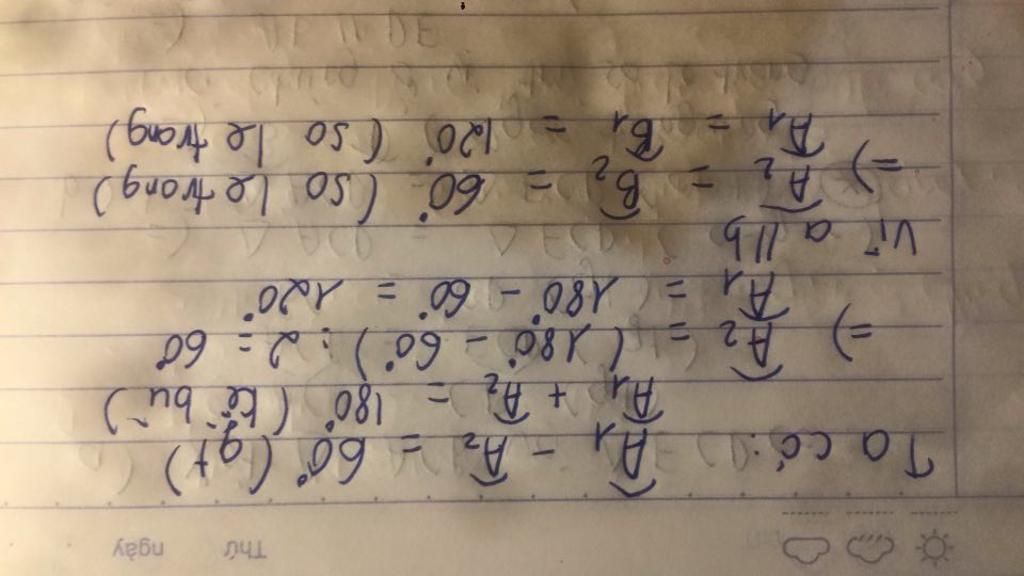 Thứ ngày
Ta có: Â1 - Â2 = 60° (gt)
Â1 + Â2 = 180° (kề bù)
=) Â2 = (180° - 60°) : 2 = 60°
Â1 = 180° - 60° = 120°
Vì a // b
=) Â2 = B̂2 = 60° (so le trong)
Â1 = B̂1 = 120° (so le trong)